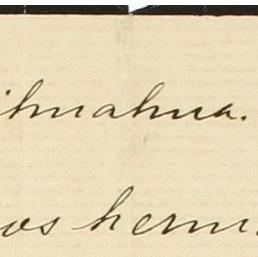 ihuahua.
os herm